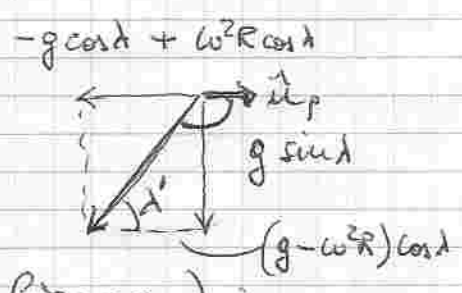 -g cosλ + ω²R cosλ
û_ρ
g sinλ
λ'
(g-ω²R) cosλ